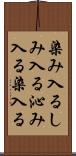 染み入るし
み入る沁み
入る染入る